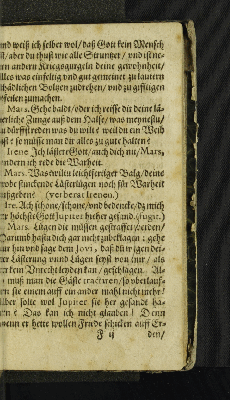 und weiß ich selber wol/ daß Gott kein Mensch
ist/ aber du thust wie alle
ein andern Kriegsgurgeln deine gewohnheit/
alles was einfeltig und gut gemeinet zu lautern
schädlichen Bolzen zudrehen/ und zu gifftigen
Pfeilen zumachen.
Mars. Gehe baldt/ oder ich reisse dir deine lä-
sterliche Zunge auß dem Halse/ was meynestu/
du dürffest reden was du wilt? weil du ein Weib
bist? so müsse man dir alles zu gute halten?
Irene. Ich lästere Gott/ auch dich nit/ Mars,
sondern ich rede die Warheit.
Mars. Was wiltu leichtfertiger Balg/ deine
grobe stinckende Lästerlügen noch für Warheit
außgeben? (verberat Irenen.)
Ire. Ach schone/ schone/ und bedencke/ dz mich
der höchste Gott Jupiter hieher gesand. (fugit.)
Mars. Lügen die müssen gestraffet werden/
Darumb hastu dich gar nicht zubeklagen: gehe
nur hin und sage dem Jovi, daß du wegen dei-
ner Lästerung und Lügen seyst von mir/ als
der kein Unrecht leyden kan/ geschlagen. Al-
so muß man die Gäste tractiren/ so verlauf-
fen sie einem auff ein ander mahl nicht mehr.
Aber solte wol Jupiter sie her gesandt ha-
ben? Das kan ich nicht glauben! Denn
wenn er hette wollen Friede schicken auff Er-
F ij den/